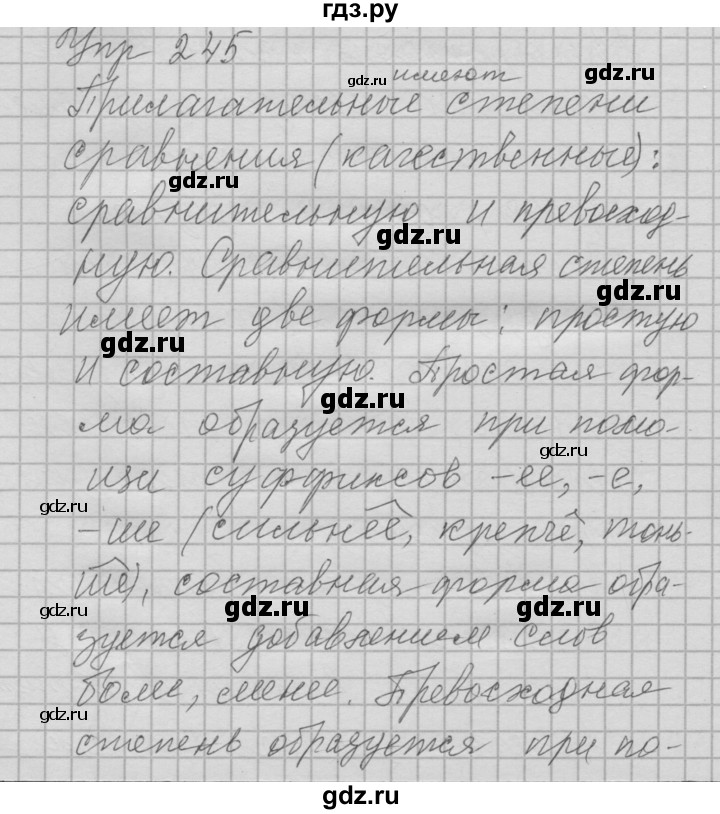 гдз.ру
Упр 245
имеют
Прилагательные степени
сравнения (качественные):
сравнительную и превосход-
ную. Сравнительная степень
имеет две формы: простую
и составную. Простая фор-
ма образуется при помо-
щи суффиксов -ее, -е,
-ше (сильнее, крепче, тонь-
ше), составная форма обра-
зуется добавлением слов
более, менее. Превосходная
степень образуется при по-
gdz.ru
gdz.ru
gdz.ru
gdz.ru
gdz.ru
gdz.ru
gdz.ru
gdz.ru
gdz.ru
gdz.ru
gdz.ru
gdz.ru
gdz.ru
gdz.ru